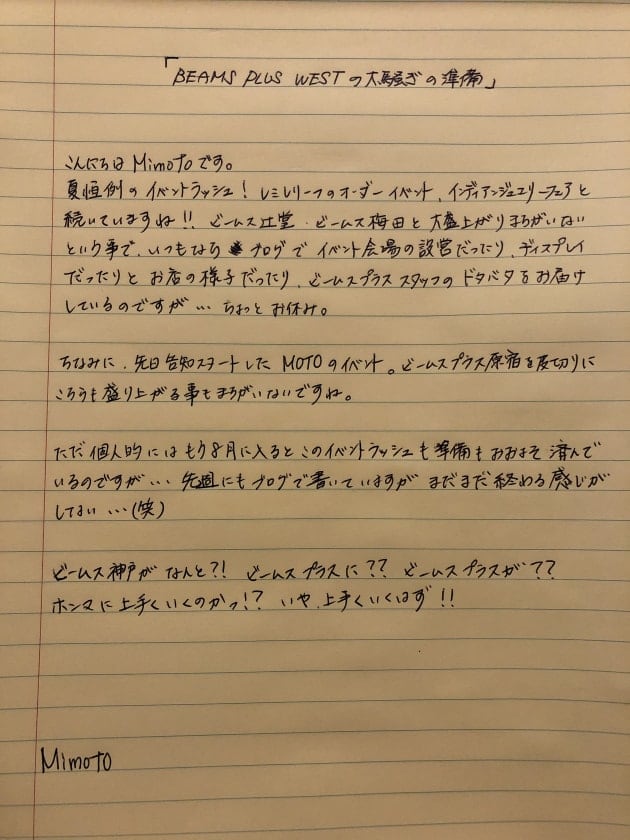 「BEAMS PLUS WESTの大騒ぎの準備」
こんにちは Mimotoです。
夏恒例のイベントラッシュ! レミレリーフのオーダーイベント、インディアンジュエリーフェアと
続いていますね!! ビームス辻堂・ビームス梅田と大盛上がりまちがいない
という事で、いつもなら ブログで イベント会場の設営だったり、ディスプレイ
だったりと お店の様子だったり、ビームスプラス スタッフのドタバタをお届け
しているのですが… ちょっとお休み。
ちなみに、先日告知スタートした MOTOのイベント。ビームスプラス原宿を皮切りに
こちらも盛り上がる事もまちがいないですね。
ただ個人的にはもう8月に入るとこのイベントラッシュも準備もおおよそ済んで
いるのですが… 先週にもブログで書いていますが まだまだ終わる感じが
しない…(笑)
ビームス神戸が なんと?! ビームスプラスに?? ビームスプラスが??
ホンマに上手くいくのかっ!? いや、上手くいくはず!!
Mimoto